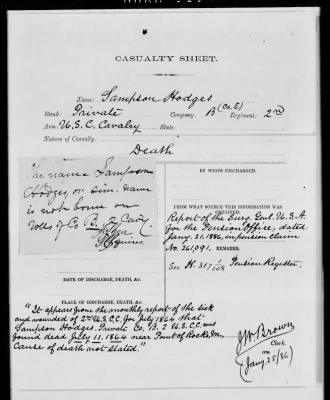 CASUALTY SHEET.
Name: Sampson Hodges
Rank: Private Company: B (Co. E) Regiment: 2nd
Arm: U.S.C. Cavalry State:
Nature of Casualty:
Death
The name Sampson
Hodges or sim. name
is not borne on
rolls of Co B. 2 Cavy
BY WHOM DISCHARGED.
FROM WHAT SOURCE THIS INFORMATION WAS
OBTAINED.
Report of the Surg. Genl. U.S.A.
for the Pension Office, dated
Jany. 21, 1886, in pension claim
No. 261,091. REMARKS.
See K. 317 Pension Register.
DATE OF DISCHARGE, DEATH, &c.
PLACE OF DISCHARGE, DEATH, &c.
"It appears from the monthly report of the sick
and wounded of 2nd U.S.C.C. for July 1864 that
Sampson Hodges, Private Co. B, 2 U.S.C.C. was
found dead July 11, 1864 near Point of Rocks,
Cause of death not stated."
J.W. Brown
Clerk.
(Jany 25/86)